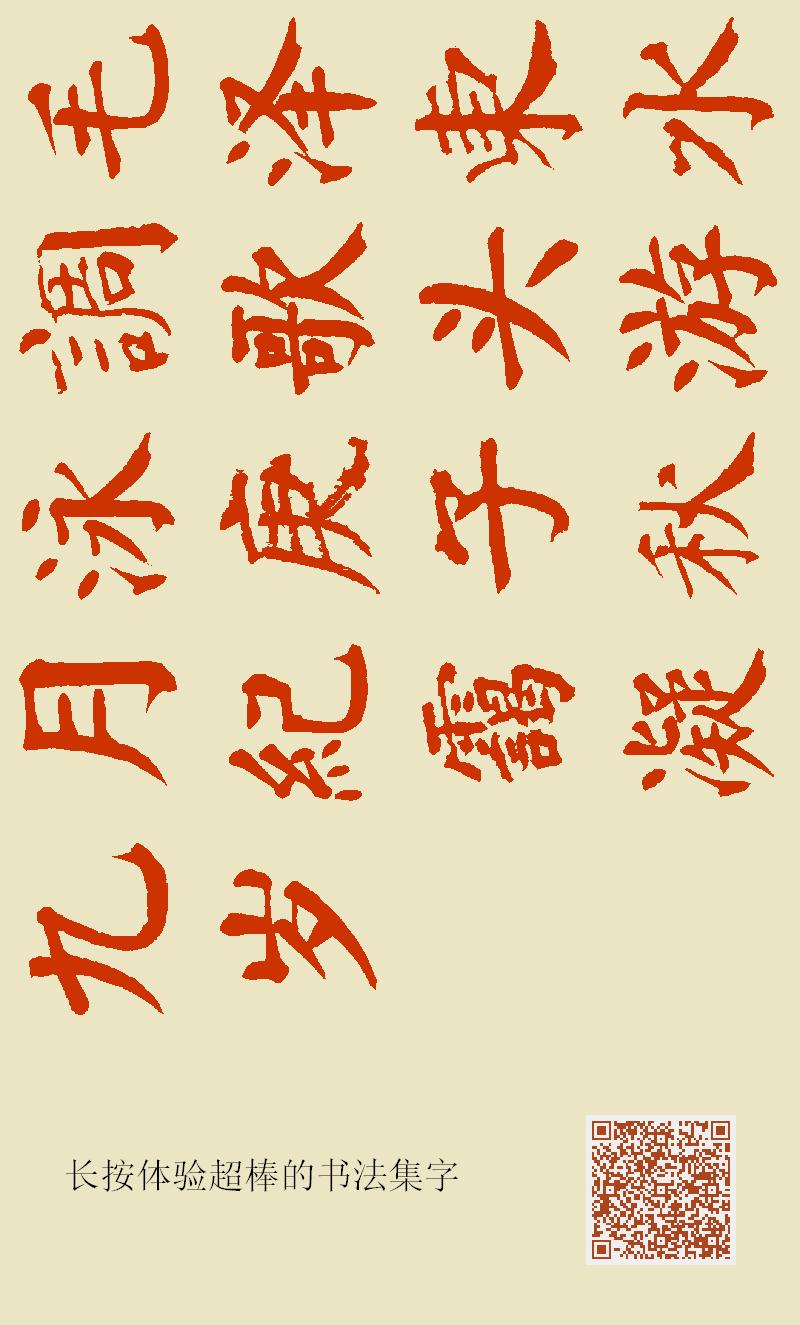 毛泽東水
調歌头游
泳庚子秋
月紀靄凝
九岁
长按体验超棒的书法集字